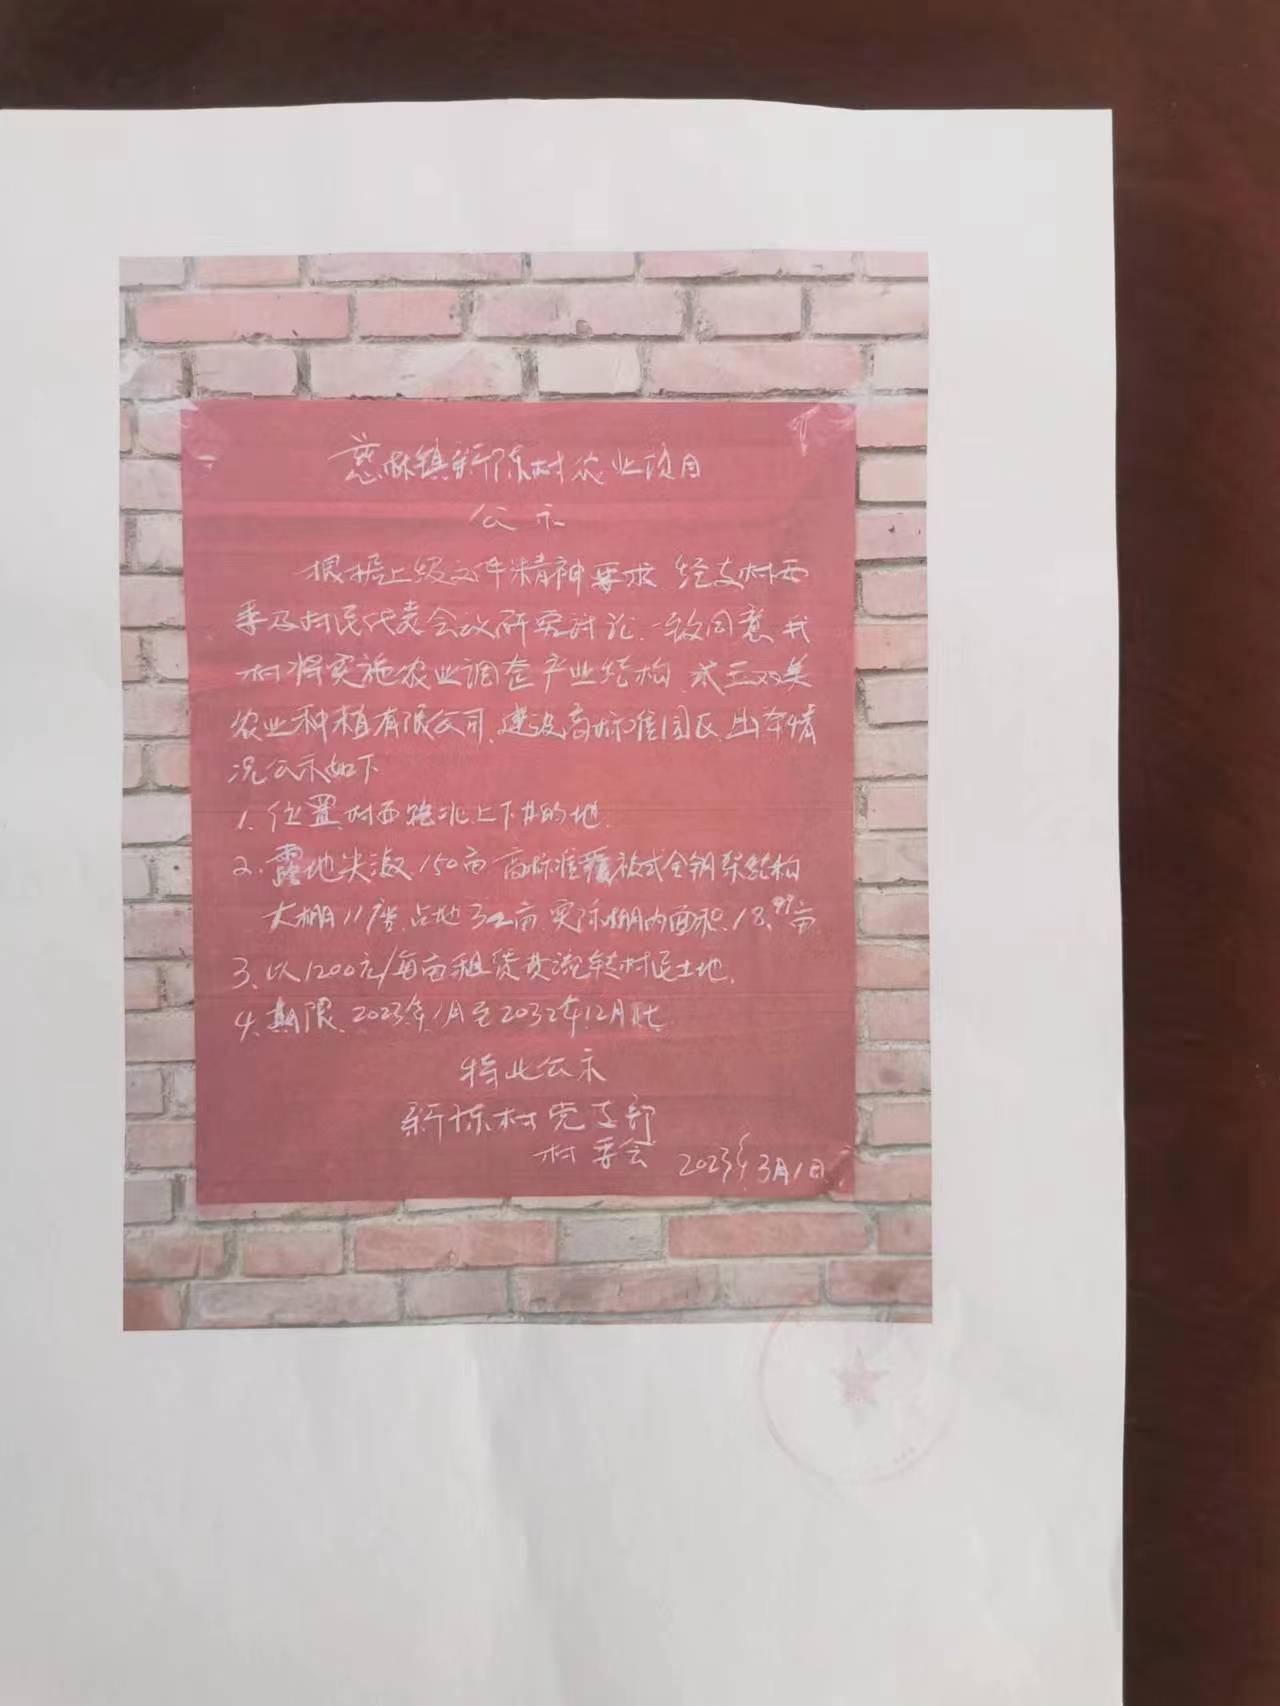 慈林镇新陈村农业项目
公示
根据上级文件精神要求,经支村两
委及村民代表会议研究讨论,一致同意我
村将实施农业调整产业结构,成立双美
农业种植有限公司,建设高标准园区,具体情
况公示如下
1、位置,村西路北上下井的地.
2、露地尖椒,150亩 高标准覆被式全钢架结构
大棚11座,占地32亩 实际棚内面积,18.99亩
3、以1200元/每亩租赁费流转村民土地,
4、期限,2023年1月至2032年12月止
特此公示
新陈村党支部
村委会 2023年3月1日